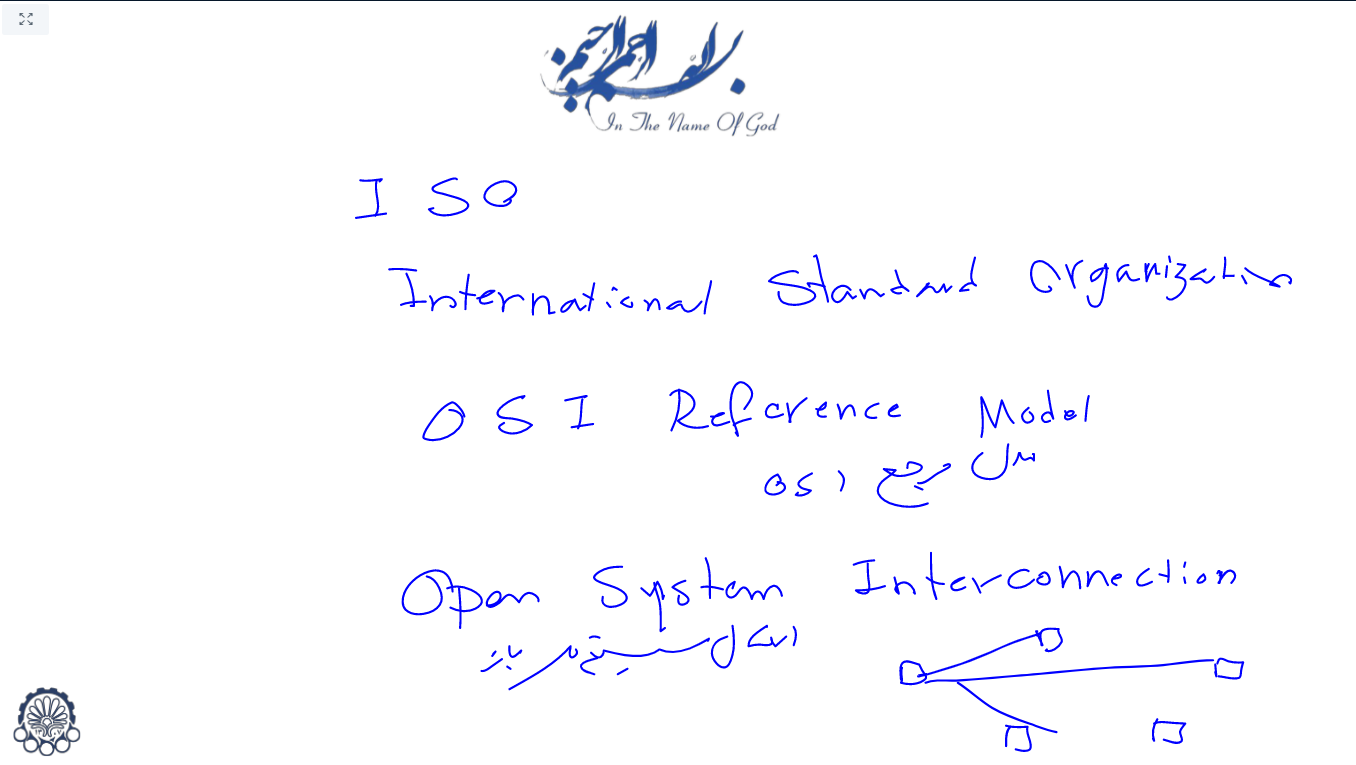 بسم الله الرحمن الرحیم
In The Name Of God
I S O
International Standard Organization
O S I Reference Model
مدل مرجع OSI
Open System Interconnection
سیستم باز